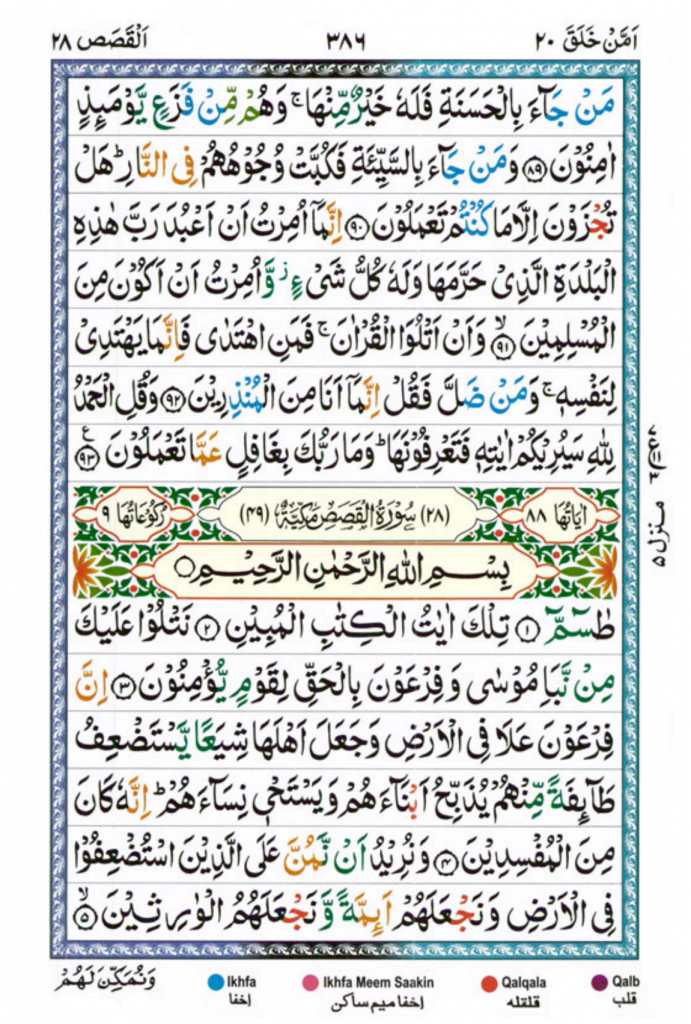 اَمَّنْ خَلَقَ ٢٠
٣٨٦
اَلْقَصَص ٢٨
مَنْ جَآءَ بِالْحَسَنَةِ فَلَهٗ خَيْرٌ مِّنْهَا ۚ وَهُمْ مِّنْ فَزَعٍ يَّوْمَىِٕذٍ
اٰمِنُوْنَ ﴿٨٩﴾ وَمَنْ جَآءَ بِالسَّيِّئَةِ فَكُبَّتْ وُجُوْهُهُمْ فِى النَّارِ ؕ هَلْ
تُجْزَوْنَ اِلَّا مَا كُنْتُمْ تَعْمَلُوْنَ ﴿٩٠﴾ اِنَّمَاۤ اُمِرْتُ اَنْ اَعْبُدَ رَبَّ هٰذِهِ
الْبَلْدَةِ الَّذِىْ حَرَّمَهَا وَلَهٗ كُلُّ شَىْءٍ ؗ وَّاُمِرْتُ اَنْ اَكُوْنَ مِنَ
الْمُسْلِمِيْنَ ﴿٩١﴾ وَاَنْ اَتْلُوَا الْقُرْاٰنَ ۚ فَمَنِ اهْتَدٰى فَاِنَّمَا يَهْتَدِىْ
لِنَفْسِهٖ ۚ وَمَنْ ضَلَّ فَقُلْ اِنَّمَاۤ اَنَا مِنَ الْمُنْذِرِيْنَ ﴿٩٢﴾ وَقُلِ الْحَمْدُ
لِلّٰهِ سَيُرِيْكُمْ اٰيٰتِهٖ فَتَعْرِفُوْنَهَا ؕ وَمَا رَبُّكَ بِغَافِلٍ عَمَّا تَعْمَلُوْنَ ﴿٩٣﴾ ع
منزل ٥
اٰيَاتُهَا ٨٨
(٢٨) سُوْرَةُ الْقَصَصِ مَكِّيَّةٌ (٤٩)
رُكُوْعَاتُهَا ٩
بِسْمِ اللّٰهِ الرَّحْمٰنِ الرَّحِيْمِ
طٰسٓمّٓ ﴿١﴾ تِلْكَ اٰيٰتُ الْكِتٰبِ الْمُبِيْنِ ﴿٢﴾ نَتْلُوْا عَلَيْكَ
مِنْ نَّبَاِ مُوْسٰى وَفِرْعَوْنَ بِالْحَقِّ لِقَوْمٍ يُّؤْمِنُوْنَ ﴿٣﴾ اِنَّ
فِرْعَوْنَ عَلَا فِى الْاَرْضِ وَجَعَلَ اَهْلَهَا شِيَعًا يَّسْتَضْعِفُ
طَآىِٕفَةً مِّنْهُمْ يُذَبِّحُ اَبْنَآءَهُمْ وَيَسْتَحْىٖ نِسَآءَهُمْ ؕ اِنَّهٗ كَانَ
مِنَ الْمُفْسِدِيْنَ ﴿٤﴾ وَنُرِيْدُ اَنْ نَّمُنَّ عَلَى الَّذِيْنَ اسْتُضْعِفُوْا
فِى الْاَرْضِ وَنَجْعَلَهُمْ اَىِٕمَّةً وَّنَجْعَلَهُمُ الْوٰرِثِيْنَ ﴿٥﴾
وَنُمَكِّنَ لَهُمْ
Ikhfa
اخفا
Ikhfa Meem Saakin
اخفا میم ساکن
Qalqala
قلقله
Qalb
قلب